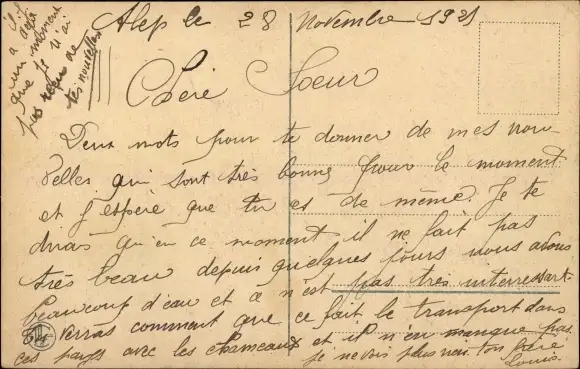 Alep le 28 Novembre 1921
il y
a déjà
un moment
que je n'ai
pas reçu de
tes nouvelles
Chère Soeur
Deux mots pour te donner de mes nou-
velles qui sont très bonne pour le moment
et j'espère que tu es de même. Je te
dirais qu'en ce moment il ne fait pas
très beau depuis quelques jours nous avons
beaucoup d'eau et ce n'est pas très interressart
Tu verras comment que ce fait le transport dans
ces pays avec les chameaux et il n'en manque pas
je ne vois plus rien. ton frère
Louis